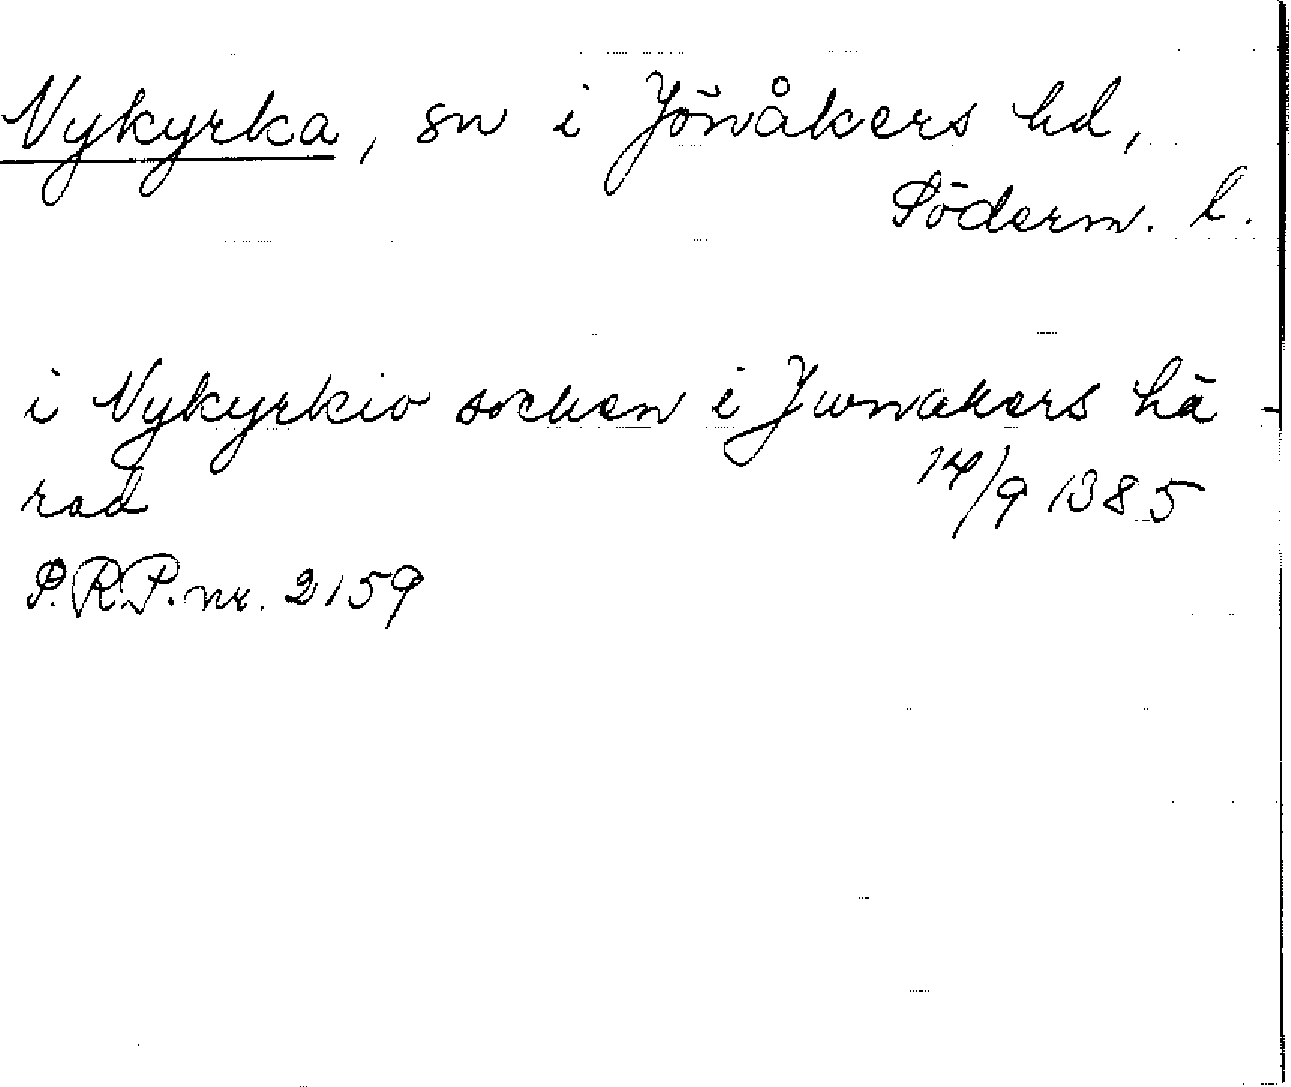 Nykyrka, sn i Jönåkers hd,
Söderm. l.
i Nykyrkio socken i Junakers hä-
rad 14/9 1385
P.R.P. nr. 2159